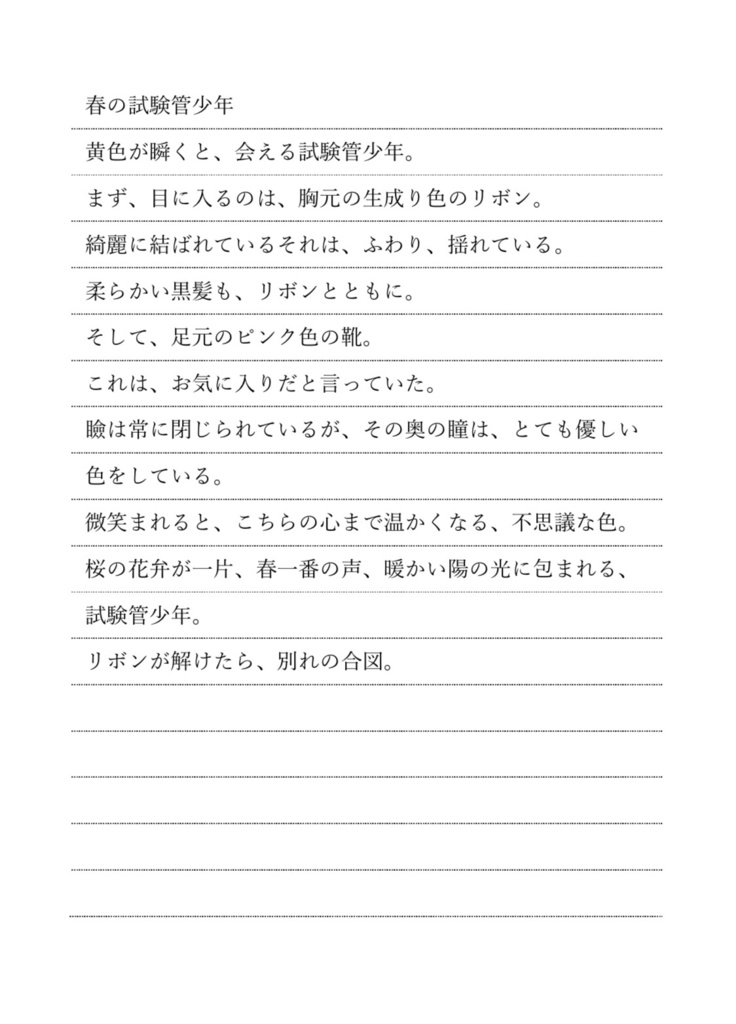 春の試験管少年
黄色が瞬くと、会える試験管少年。
まず、目に入るのは、胸元の生成り色のリボン。
綺麗に結ばれているそれは、ふわり、揺れている。
柔らかい黒髪も、リボンとともに。
そして、足元のピンク色の靴。
これは、お気に入りだと言っていた。
瞼は常に閉じられているが、その奥の瞳は、とても優しい
色をしている。
微笑まれると、こちらの心まで温かくなる、不思議な色。
桜の花弁が一片、春一番の声、暖かい陽の光に包まれる、
試験管少年。
リボンが解けたら、別れの合図。